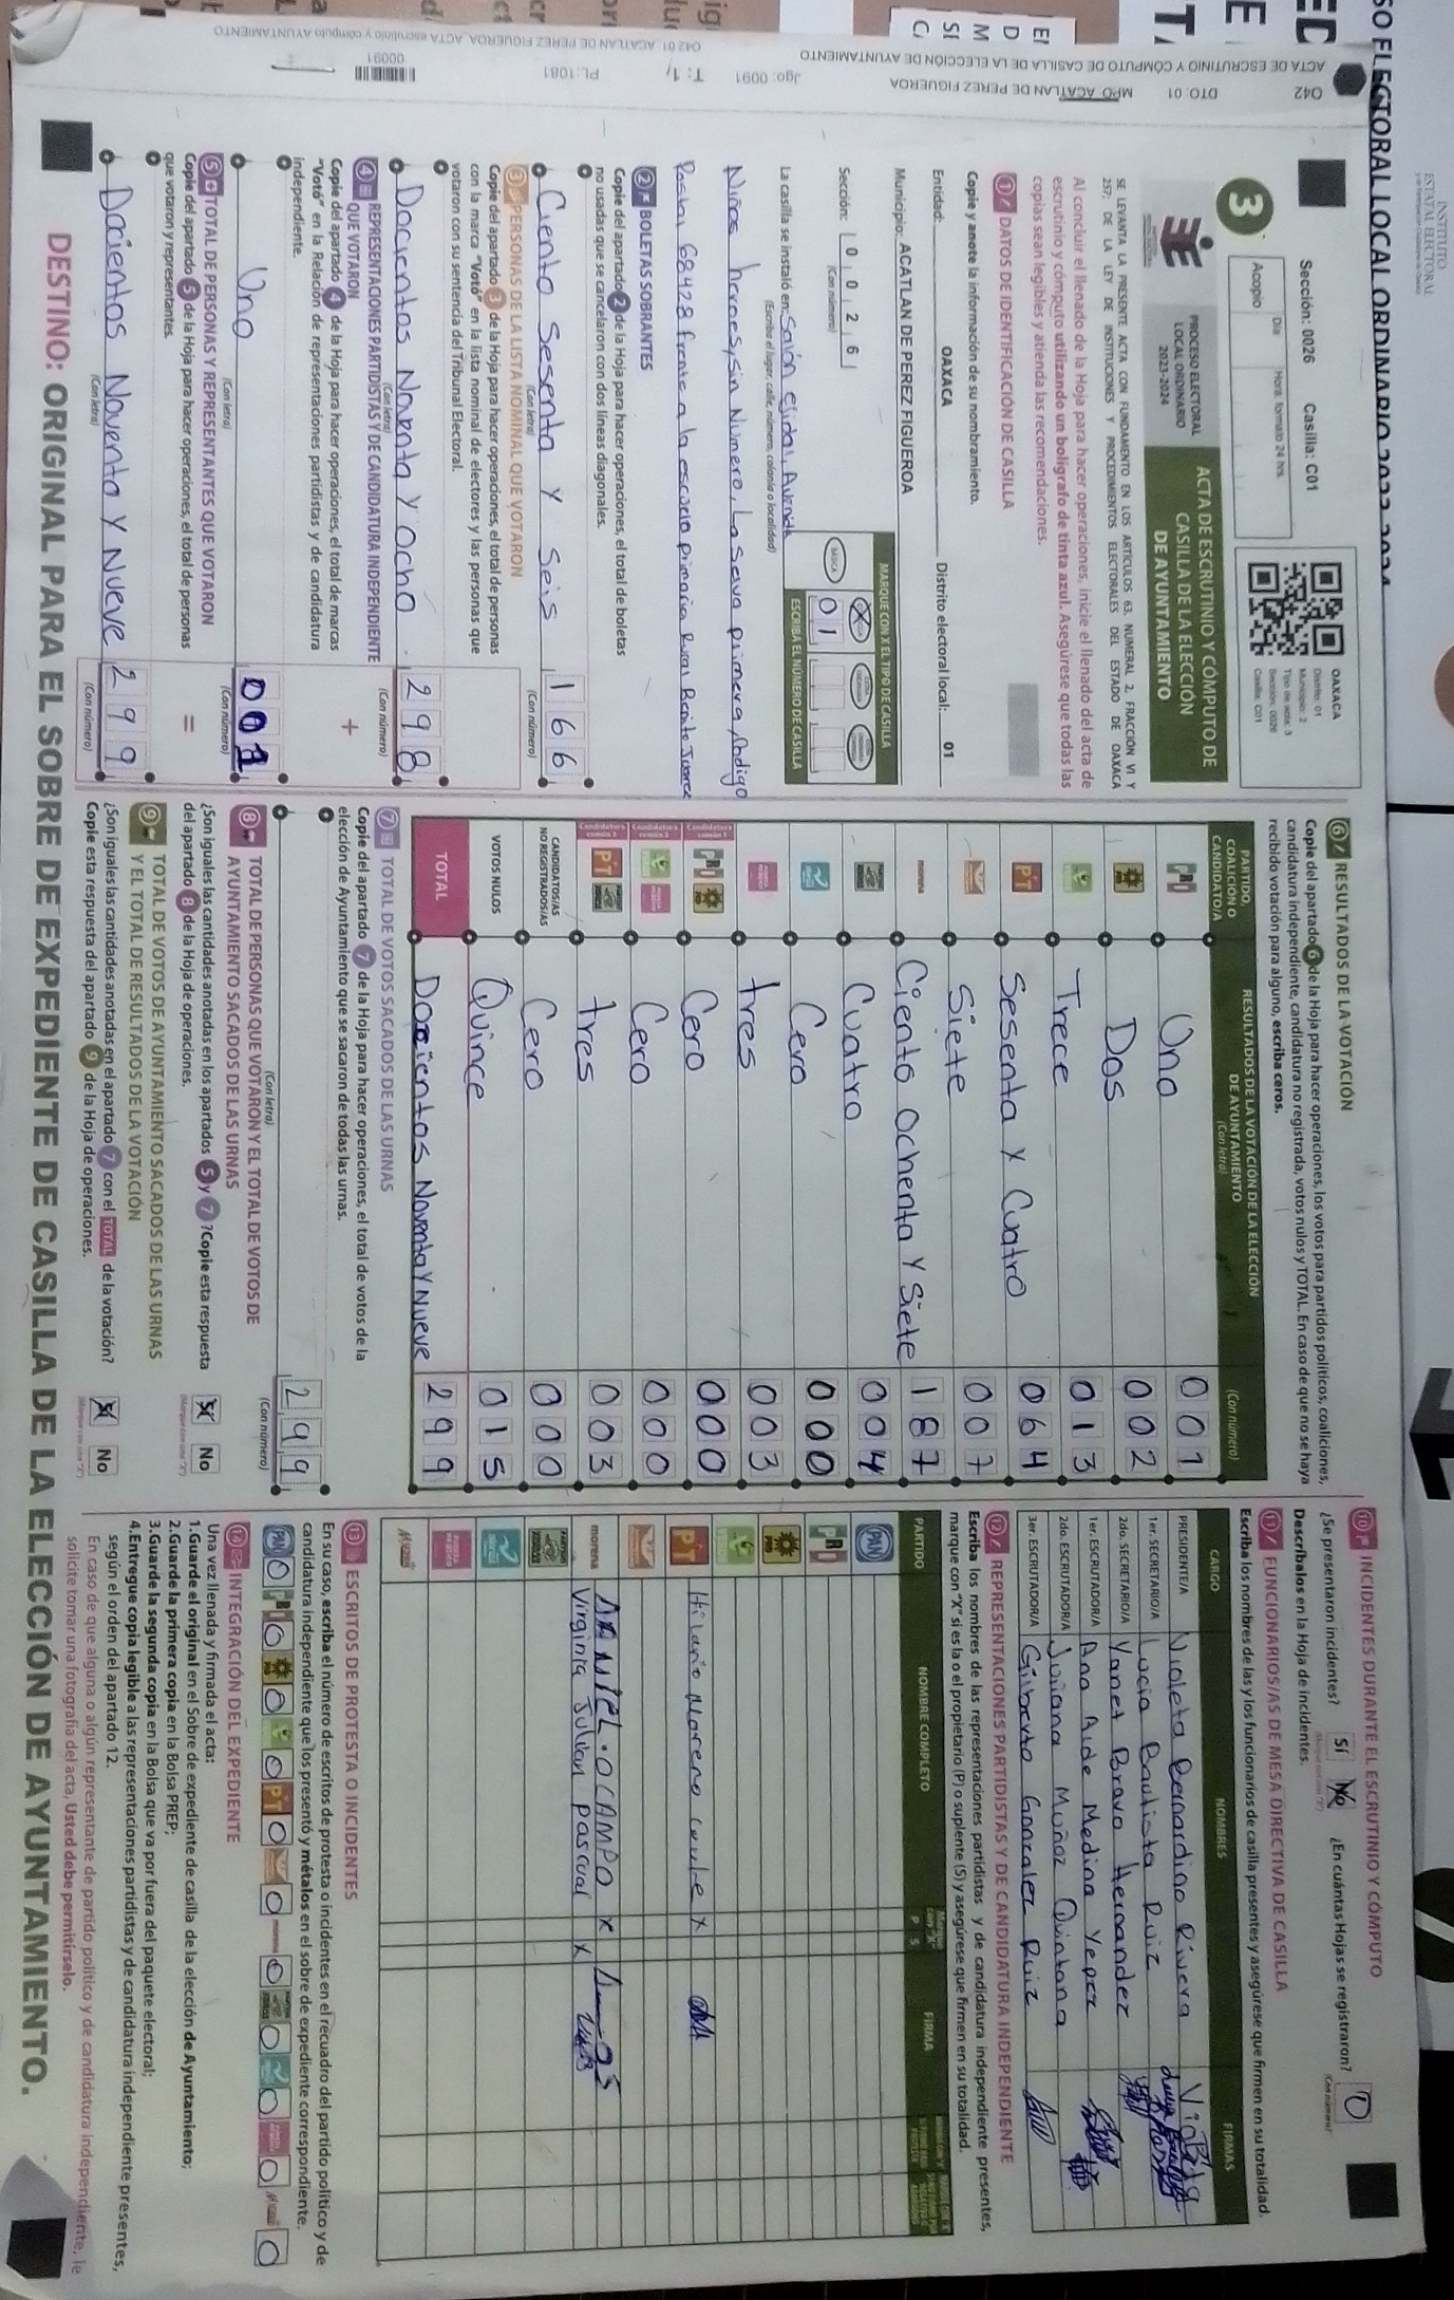 INSTITUTO
ESTATAL ELECTORAL
SO ELECTORAL LOCAL ORDINARIO 2023-2024
Sección: 0026 Casilla: C01
Día Hora: formato 24 hrs.
Acopio
3
OAXACA
Distrito: 01
Municipio: 2
Tipo de acta: 3
Sección: 0026
Casilla: C01
PROCESO ELECTORAL
LOCAL ORDINARIO
2023-2024
ACTA DE ESCRUTINIO Y CÓMPUTO DE
CASILLA DE LA ELECCIÓN
DE AYUNTAMIENTO
SE LEVANTA LA PRESENTE ACTA CON FUNDAMENTO EN LOS ARTÍCULOS 63, NUMERAL 2, FRACCIÓN VI Y
257; DE LA LEY DE INSTITUCIONES Y PROCEDIMIENTOS ELECTORALES DEL ESTADO DE OAXACA
Al concluir el llenado de la Hoja para hacer operaciones, inicie el llenado del acta de
escrutinio y cómputo utilizando un bolígrafo de tinta azul. Asegúrese que todas las
copias sean legibles y atienda las recomendaciones.
1 DATOS DE IDENTIFICACIÓN DE CASILLA
Copie y anote la información de su nombramiento.
Entidad: OAXACA Distrito electoral local: 01
Municipio: ACATLAN DE PEREZ FIGUEROA
Sección: 0 0 2 6
(Con número)
MARQUE CON X EL TIPO DE CASILLA
BÁSICA X
0 1
ESCRIBA EL NÚMERO DE CASILLA
La casilla se instaló en: Salón ejidal, Avenida
(Escriba el lugar, calle, número, colonia o localidad)
Niños heroes, sin Número, La Selva primera, Codigo
Postal 68428 frente a la escuela primaria Rural Benito Juarez
2 BOLETAS SOBRANTES
Copie del apartado 2 de la Hoja para hacer operaciones, el total de boletas
no usadas que se cancelaron con dos líneas diagonales.
Ciento Sesenta Y Seis 1 6 6
(Con letra) (Con número)
3 PERSONAS DE LA LISTA NOMINAL QUE VOTARON
Copie del apartado 3 de la Hoja para hacer operaciones, el total de personas
con la marca "Votó" en la lista nominal de electores y las personas que
votaron con su sentencia del Tribunal Electoral.
Docientos Noventa Y Ocho 2 9 8
(Con letra) (Con número)
4 REPRESENTACIONES PARTIDISTAS Y DE CANDIDATURA INDEPENDIENTE
QUE VOTARON
Copie del apartado 4 de la Hoja para hacer operaciones, el total de marcas
"Votó" en la Relación de representaciones partidistas y de candidatura
independiente. +
Uno 0 0 1
(Con letra) (Con número)
5 TOTAL DE PERSONAS Y REPRESENTANTES QUE VOTARON
Copie del apartado 5 de la Hoja para hacer operaciones, el total de personas
que votaron y representantes. =
Docientos Noventa Y Nueve 2 9 9
(Con letra) (Con número)
6 RESULTADOS DE LA VOTACIÓN
Copie del apartado 6 de la Hoja para hacer operaciones, los votos para partidos políticos, coaliciones,
candidatura independiente, candidatura no registrada, votos nulos y TOTAL. En caso de que no se haya
recibido votación para alguno, escriba ceros.
PARTIDO,
COALICIÓN O
CANDIDATO/A
RESULTADOS DE LA VOTACIÓN DE LA ELECCIÓN
DE AYUNTAMIENTO
(Con letra) (Con número)
PRI Uno 0 0 1
PRD Dos 0 0 2
Trece 0 1 3
PT Sesenta Y Cuatro 0 6 4
Siete 0 0 7
morena Ciento Ochenta Y Siete 1 8 7
Cuatro 0 0 4
Cero 0 0 0
tres 0 0 3
PRI PRD Cero 0 0 0
Cero 0 0 0
PT tres 0 0 3
CANDIDATOS/AS
NO REGISTRADOS/AS Cero 0 0 0
VOTOS NULOS Quince 0 1 5
TOTAL Docientos Noventa Y Nueve 2 9 9
7 TOTAL DE VOTOS SACADOS DE LAS URNAS
Copie del apartado 7 de la Hoja para hacer operaciones, el total de votos de la
elección de Ayuntamiento que se sacaron de todas las urnas.
2 9 9
(Con letra) (Con número)
8 TOTAL DE PERSONAS QUE VOTARON Y EL TOTAL DE VOTOS DE
AYUNTAMIENTO SACADOS DE LAS URNAS
¿Son iguales las cantidades anotadas en los apartados 5 y 7? Copie esta respuesta
del apartado 8 de la Hoja de operaciones. Sí No
9 TOTAL DE VOTOS DE AYUNTAMIENTO SACADOS DE LAS URNAS
Y EL TOTAL DE RESULTADOS DE LA VOTACIÓN
¿Son iguales las cantidades anotadas en el apartado 7 con el TOTAL de la votación?
Copie esta respuesta del apartado 9 de la Hoja de operaciones. Sí No
10 INCIDENTES DURANTE EL ESCRUTINIO Y CÓMPUTO
¿Se presentaron incidentes? Sí No ¿En cuántas Hojas se registraron? 0
Descríbalos en la Hoja de incidentes.
11 FUNCIONARIOS/AS DE MESA DIRECTIVA DE CASILLA
Escriba los nombres de las y los funcionarios de casilla presentes y asegúrese que firmen en su totalidad.
CARGO NOMBRES FIRMAS
PRESIDENTE/A Violeta Bernardino Rivera
1er. SECRETARIO/A Lucia Bautista Ruiz
2do. SECRETARIO/A Yanet Bravo Hernandez
1er. ESCRUTADOR/A Ana Aide Medina Yepez
2do. ESCRUTADOR/A Juliana Muñoz Quintana
3er. ESCRUTADOR/A Gilberto Gonzalez Ruiz
12 REPRESENTACIONES PARTIDISTAS Y DE CANDIDATURA INDEPENDIENTE
Escriba los nombres de las representaciones partidistas y de candidatura independiente presentes,
marque con "X" si es la o el propietario (P) o suplente (S) y asegúrese que firmen en su totalidad.
PARTIDO NOMBRE COMPLETO P S FIRMA
PAN
PRI
PRD
PT Hilario Moreno x
morena OCAMPO x
Virginia Julian Pascual x
13 ESCRITOS DE PROTESTA O INCIDENTES
En su caso, escriba el número de escritos de protesta o incidentes en el recuadro del partido político y de
candidatura independiente que los presentó y métalos en el sobre de expediente correspondiente.
14 INTEGRACIÓN DEL EXPEDIENTE
Una vez llenada y firmada el acta:
1.Guarde el original en el Sobre de expediente de casilla de la elección de Ayuntamiento;
2.Guarde la primera copia en la Bolsa PREP;
3.Guarde la segunda copia en la Bolsa que va por fuera del paquete electoral;
4.Entregue copia legible a las representaciones partidistas y de candidatura independiente presentes,
según el orden del apartado 12.
En caso de que alguna o algún representante de partido político y de candidatura independiente, le
solicite tomar una fotografía del acta, Usted debe permitírselo.
DESTINO: ORIGINAL PARA EL SOBRE DE EXPEDIENTE DE CASILLA DE LA ELECCIÓN DE AYUNTAMIENTO.
042 DTO: 01 MPO ACATLAN DE PEREZ FIGUEROA
ACTA DE ESCRUTINIO Y CÓMPUTO DE CASILLA DE LA ELECCIÓN DE AYUNTAMIENTO
Jgo: 0091 T: 1/ PL:1081 00091
042 01 ACATLAN DE PEREZ FIGUEROA, ACTA escrutinio y cómputo AYUNTAMIENTO